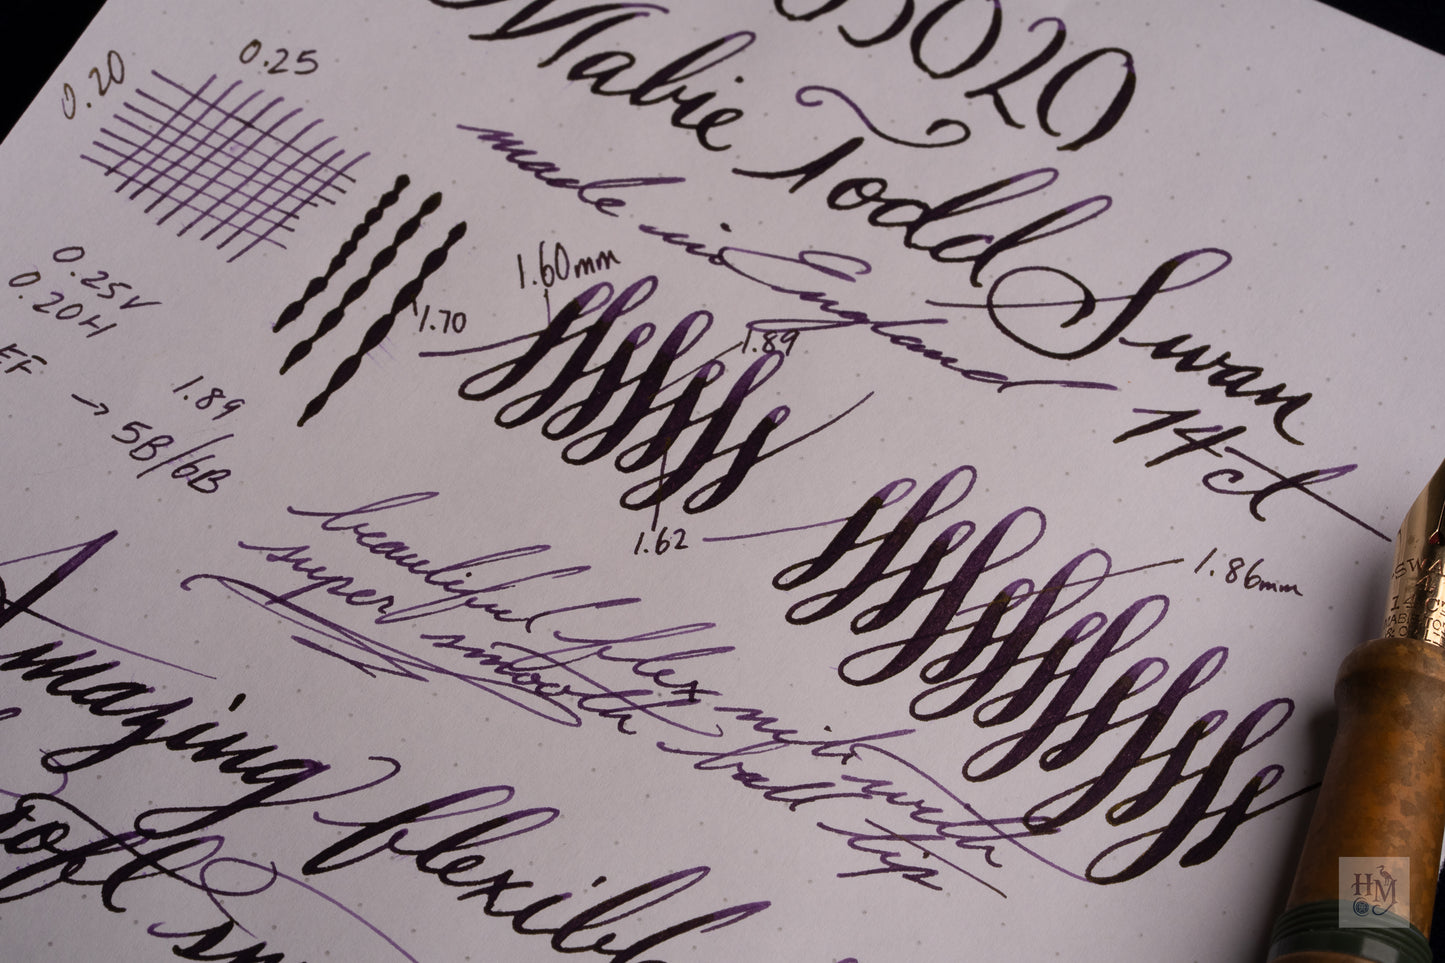 3020
Mabie Todd Swan
made in England
14ct
0.25
0.20
0.25V
0.20H
EF
1.89
→ 5B/6B
1.70
1.60mm
1.89
1.62
1.86mm
beautiful flex nib with
super smooth ball tip
Amazing flexibl
soft
SWA
14C
HM